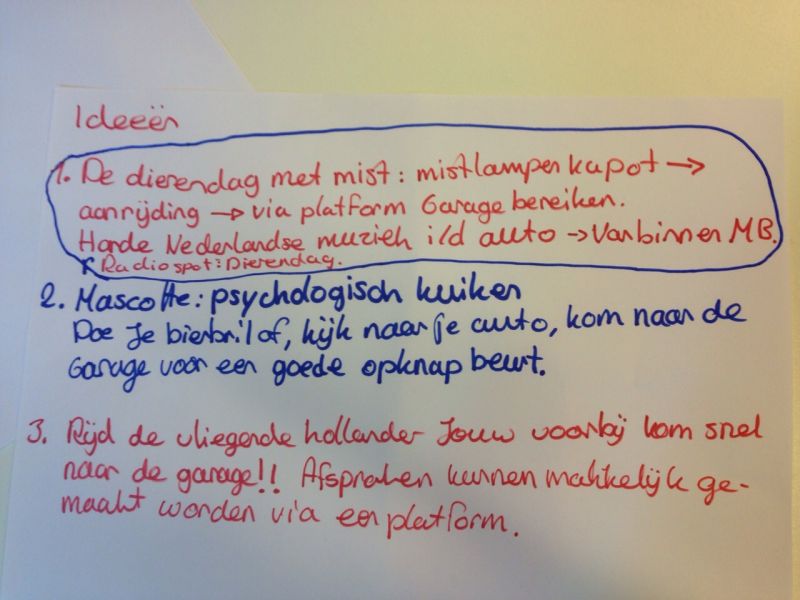 Ideeën
1. De dierendag met mist: mistlampen kapot →
aanrijding → via platform Garage bereiken.
Harde Nederlandse muziek i/d auto → Van binnen MB.
Radiospot: Dierendag.
2. Mascotte: psychologisch kuiken
Doe Je bierbril af, kijk naar je auto, kom naar de
Garage voor een goede opknap beurt.
3. Rijd de vliegende hollander Jouw voorbij kom snel
naar de garage!! Afspraken kunnen makkelijk ge-
maakt worden via een platform.